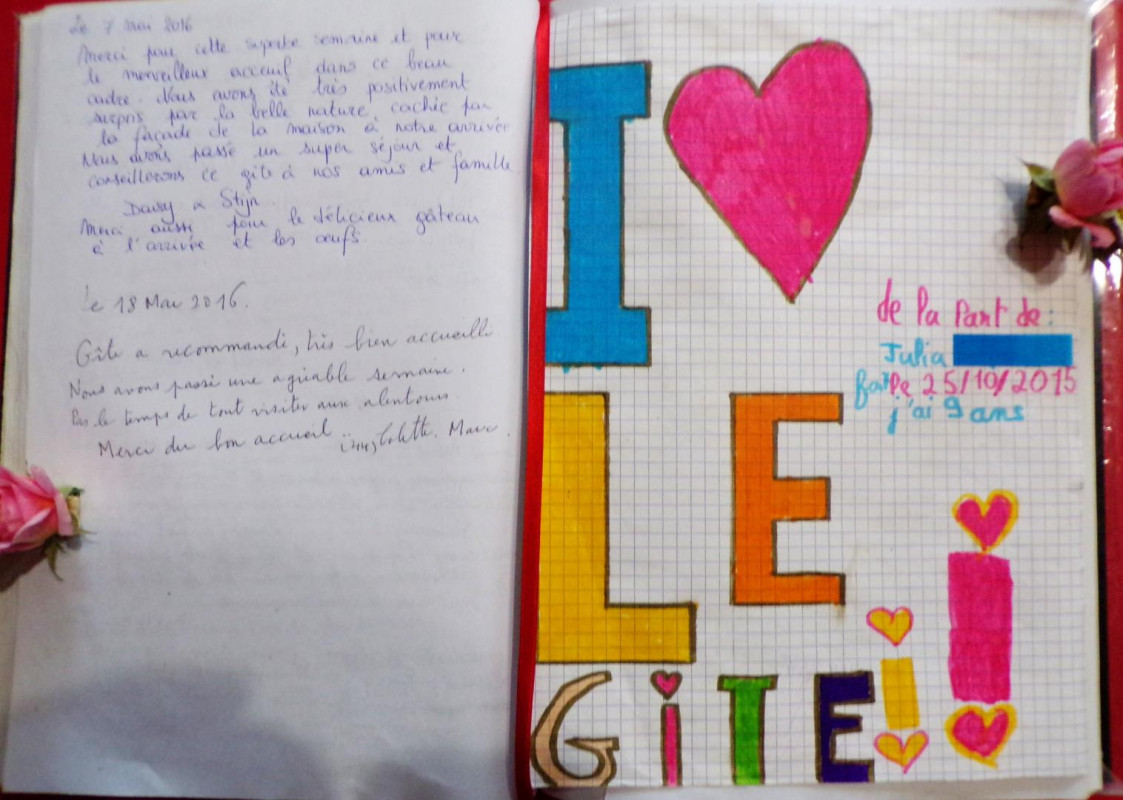 Le 7 mai 2016
Merci pour cette superbe semaine et pour
le merveilleux acceuil dans ce beau
cadre. Nous avons été très positivement
surpris par la belle nature, cachée par
la façade de la maison à notre arrivée
Nous avons passé un super séjour et
conseillerons ce gîte à nos amis et famille
Daisy & Stijn
Merci aussi pour le délicieux gâteau
à l'arrivée et les oeufs
Le 18 Mai 2016.
Gîte a recommandé, très bien accueilli
Nous avons passé une agréable semaine.
Pas le temps de tout visiter aux alentours.
Merci du bon accueil Colette. Marc.
I
LE
GiTE!!
de la Part de:
Julia
fait le 25/10/2015
j'ai 9 ans